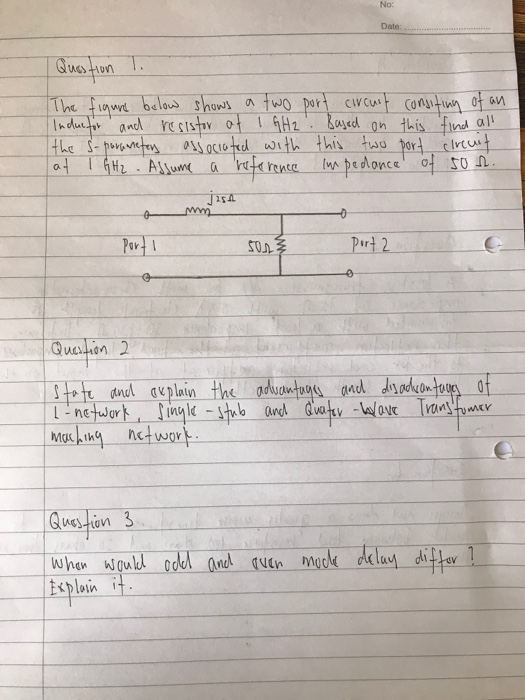 No:
Date:
Question 1.
The figure below shows a two port circuit consiting of an
Inductor and resistor at 1 GHz. Based on this find all
the S-parameters associated with this two port circuit
at 1 GHz. Assume a reference impedance of 50 Ω.
j25Ω
Port 1 50Ω Port 2
Question 2
State and explain the advantages and disadvantages of
L-network, Single-stub and Quater-Wave Transfomer
maching network.
Question 3
When would odd and even mode delay differ?
Explain it.